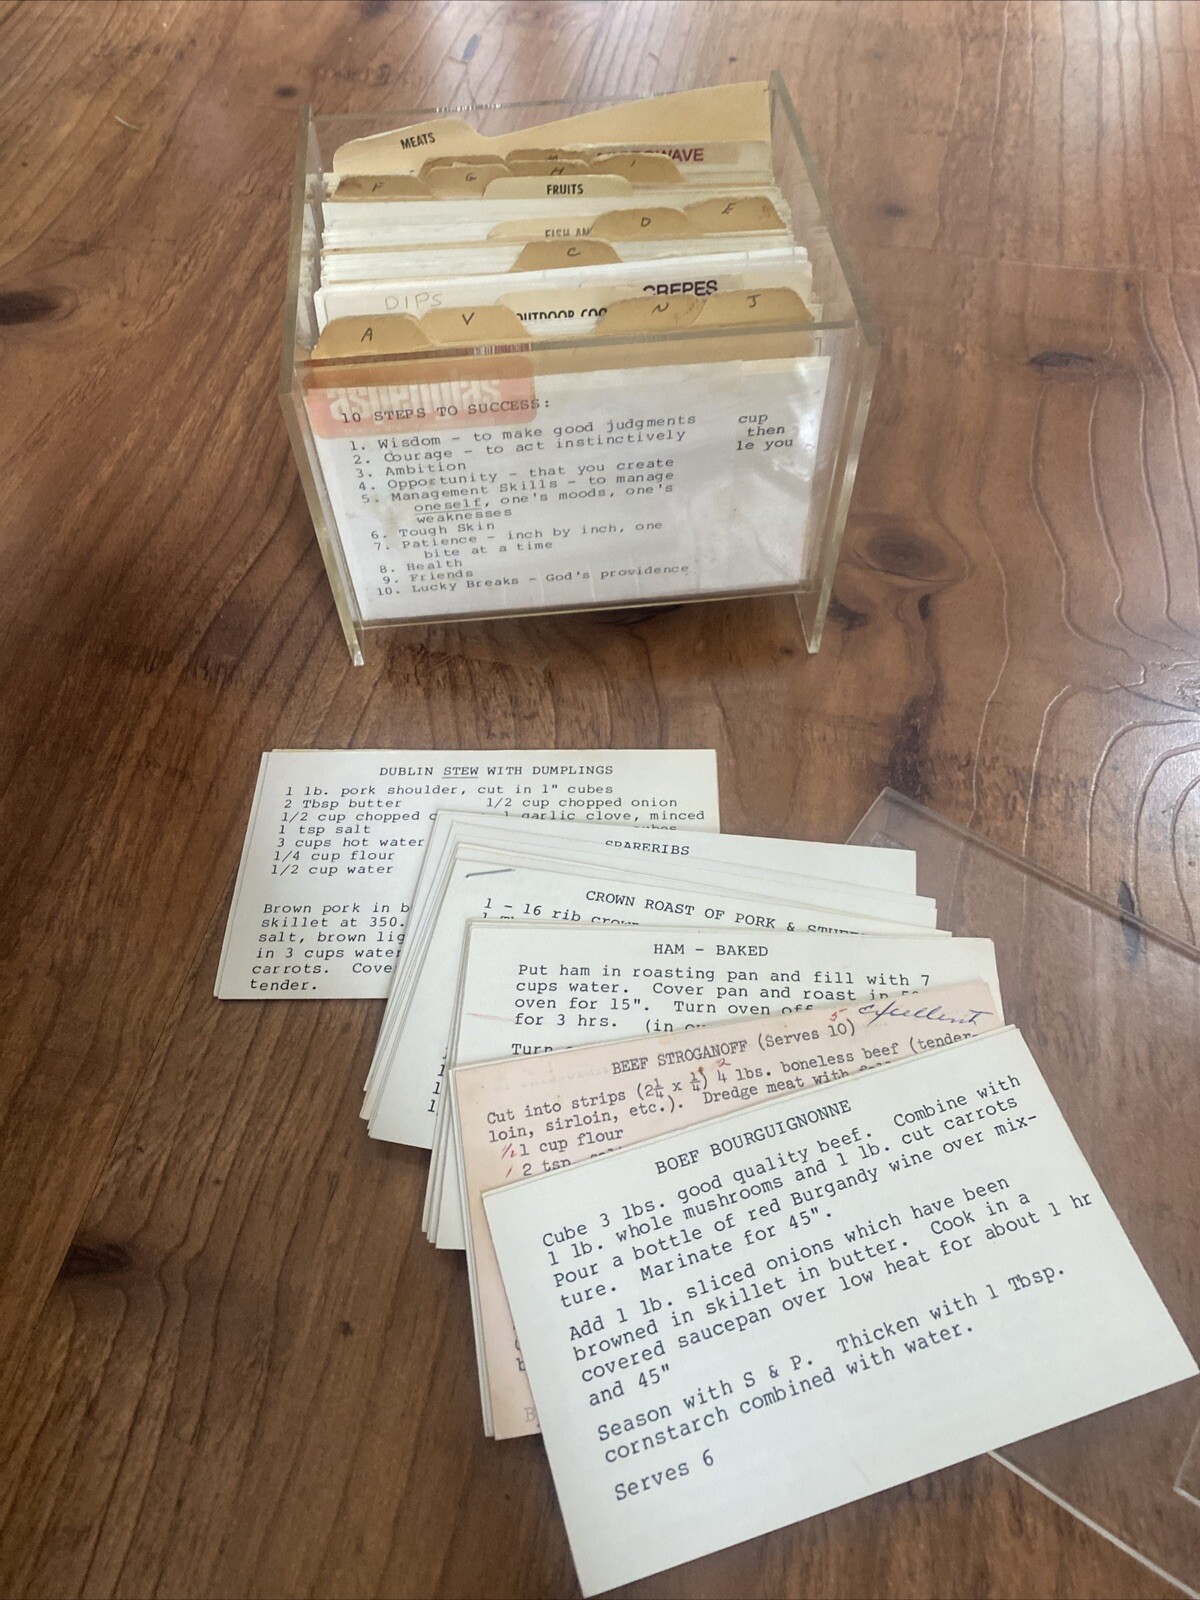 MEATS
WAVE
F
G
H
I
FRUITS
D
E
FISH AN
C
DIPS
CREPES
A
V
OUTDOOR COO
N
J
10 STEPS TO SUCCESS:
1. Wisdom - to make good judgments
2. Courage - to act instinctively
3. Ambition
4. Opportunity - that you create
5. Management Skills - to manage
oneself, one's moods, one's
weaknesses
6. Tough Skin
7. Patience - inch by inch, one
bite at a time
8. Health
9. Friends
10. Lucky Breaks - God's providence
cup
then
le you
DUBLIN STEW WITH DUMPLINGS
1 lb. pork shoulder, cut in 1" cubes
2 Tbsp butter 1/2 cup chopped onion
1/2 cup chopped c 1 garlic clove, minced
1 tsp salt
3 cups hot water
1/4 cup flour
1/2 cup water
Brown pork in b
skillet at 350.
salt, brown lig
in 3 cups water
carrots. Cove
tender.
SPARERIBS
CROWN ROAST OF PORK & STUFF
1 - 16 rib crow
HAM - BAKED
Put ham in roasting pan and fill with 7
cups water. Cover pan and roast in
oven for 15". Turn oven off
for 3 hrs.
Turn
BEEF STROGANOFF (Serves 10) 5 excellent
Cut into strips (2¼ x ¼) 4 lbs. boneless beef (tender- 2
loin, sirloin, etc.). Dredge meat with
1/2 1 cup flour
1 2 tsp.
BOEF BOURGUIGNONNE
Cube 3 lbs. good quality beef. Combine with
1 lb. whole mushrooms and 1 lb. cut carrots
Pour a bottle of red Burgandy wine over mix-
ture. Marinate for 45".
Add 1 lb. sliced onions which have been
browned in skillet in butter. Cook in a
covered saucepan over low heat for about 1 hr
and 45"
Season with S & P. Thicken with 1 Tbsp.
cornstarch combined with water.
Serves 6